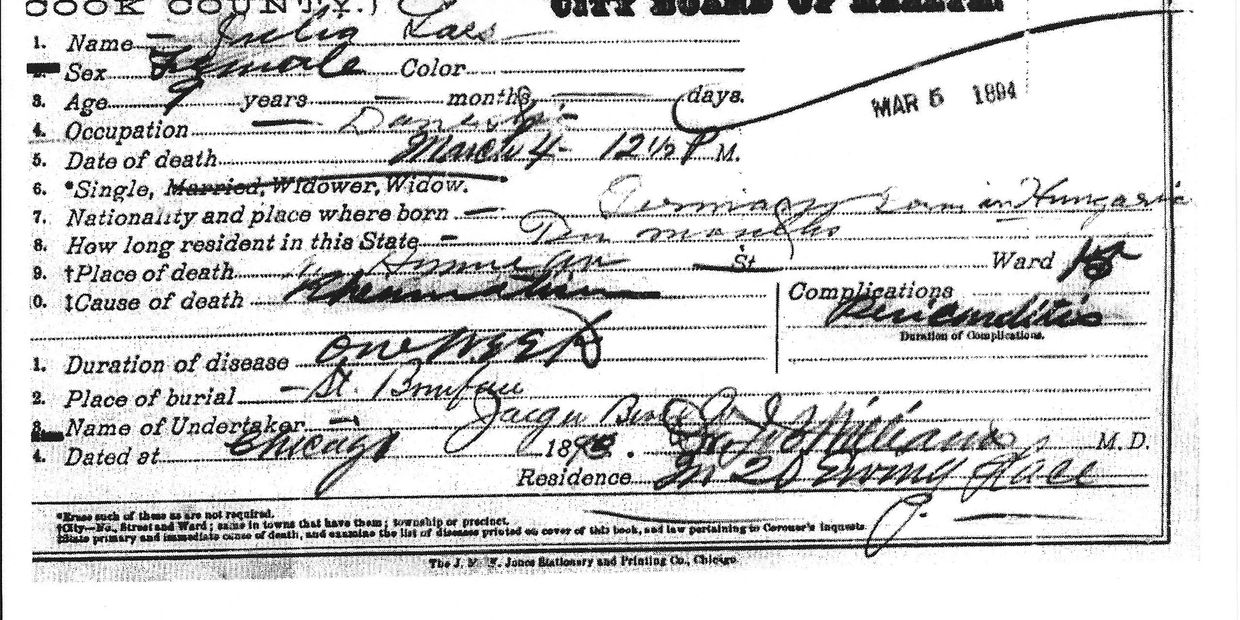 COOK COUNTY.) CITY BOARD OF HEALTH.
1. Name Julia Laes
2. Sex Female Color
3. Age 9 years months days. MAR 5 1894
4. Occupation
5. Date of death March 4 12 1/2 P M.
6. *Single, Married, Widower, Widow.
7. Nationality and place where born Germany Born in Hungaria
8. How long resident in this State months
9. †Place of death St Ward 15
0. ‡Cause of death Rheumatism Complications
Pericarditis
Duration of Complications.
1. Duration of disease One Week
2. Place of burial St. Boniface
3. Name of Undertaker Jaeger
4. Dated at Chicago 189 . Williams M.D.
Residence Place
*Erase such of these as are not required.
†City—No., Street and Ward; same in towns that have them; township or precinct.
‡State primary and immediate cause of death, and examine the list of diseases printed on cover of this book, and law pertaining to Coroner's inquests.
The J. M. W. Jones Stationery and Printing Co., Chicago.